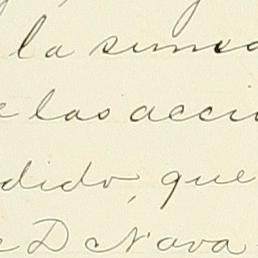 la suma
e las acci
dido, que
e D Nava